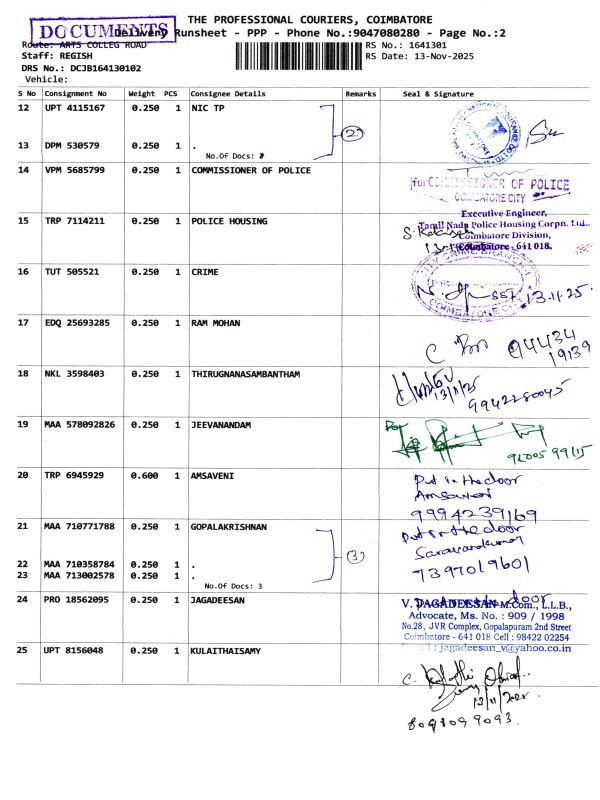 THE PROFESSIONAL COURIERS, COIMBATORE
DOCUMENTS
Delivery Runsheet - PPP - Phone No.:9047080280 - Page No.:2
Route: ARTS COLLEG ROAD
RS No.: 1641301
Staff: REGISH
RS Date: 13-Nov-2025
DRS No.: DCJB164130102
Vehicle:
S No Consignment No Weight PCS Consignee Details Remarks Seal & Signature
12 UPT 4115167 0.250 1 NIC TP
(2)
13 DPM 530579 0.250 1 .
No.Of Docs:
14 VPM 5685799 0.250 1 COMMISSIONER OF POLICE
for COMMISSIONER OF POLICE
COIMBATORE CITY
15 TRP 7114211 0.250 1 POLICE HOUSING
Executive Engineer,
Tamil Nadu Police Housing Corpn. Ltd.,
Coimbatore Division,
Coimbatore - 641 018.
16 TUT 505521 0.250 1 CRIME
CITY CRIME BRANCH
SSI, 13-11-25.
COIMBATORE
17 EDQ 25693285 0.250 1 RAM MOHAN
94434
19139
18 NKL 3598403 0.250 1 THIRUGNANASAMBANTHAM
13/11/25
9942280045
19 MAA 578092826 0.250 1 JEEVANANDAM
For
92005 99115
20 TRP 6945929 0.600 1 AMSAVENI
Put in the door
Amsaveni
9994239169
21 MAA 710771788 0.250 1 GOPALAKRISHNAN
Put in the door
Saravanakumar
(3)
22 MAA 710358784 0.250 1 .
23 MAA 713002578 0.250 1 .
7397019601
No.Of Docs: 3
24 PRO 18562095 0.250 1 JAGADEESAN
door
V. JAGADEESAN M.Com., L.L.B.,
Advocate, Ms. No. : 909 / 1998
No.28, JVR Complex, Gopalapuram 2nd Street
Coimbatore - 641 018 Cell : 98422 02254
jagadeesan_v@yahoo.co.in
25 UPT 8156048 0.250 1 KULAITHAISAMY
8098099093